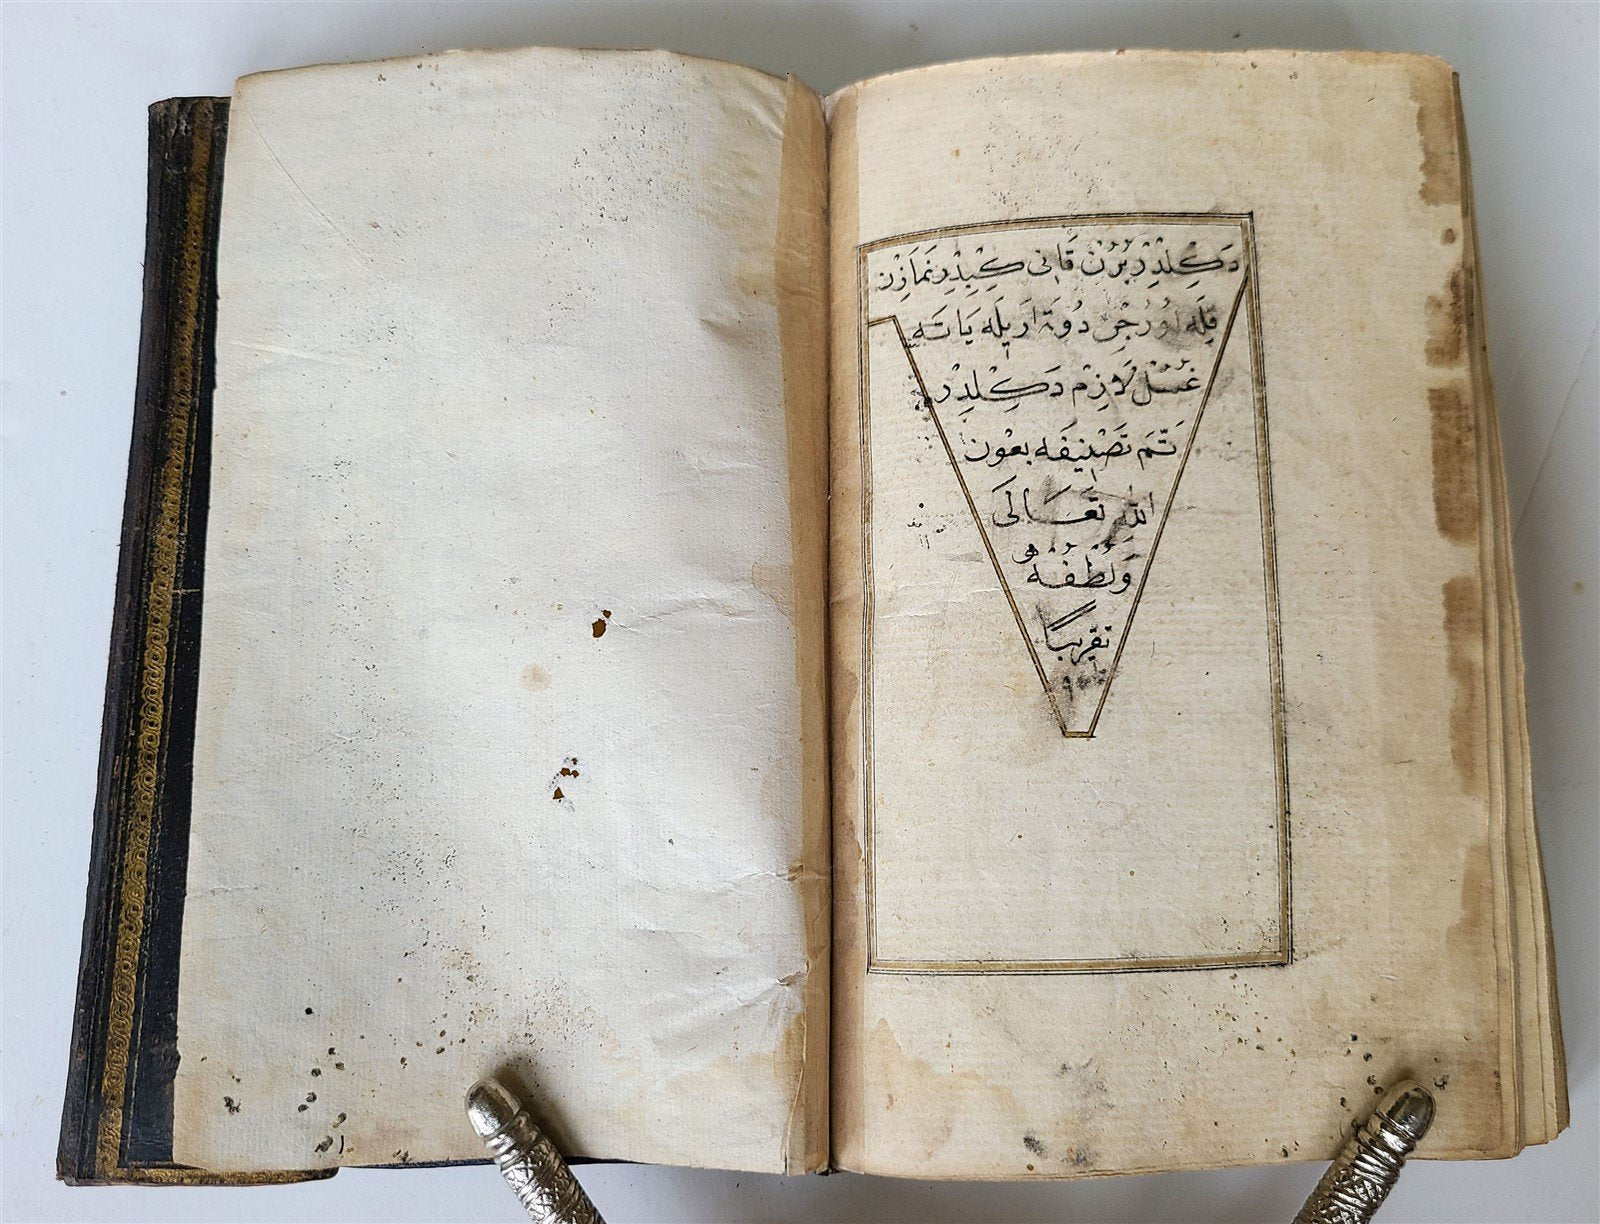 دَكِلْدِرْ بُرُنْ قَانِى كِبِدِرْ نَمَازِنْ
قِلَه اُورُجْنِ دُوتَه اَرِيلَه يَاتَه
غُسُلْ لَازِمْ دَكِلْدِرْ
تَمَّ تَصْنِيفَه بِعَوْنِ
اللهِ تَعَالَى
وَلُطْفُهُ
تقريبًا